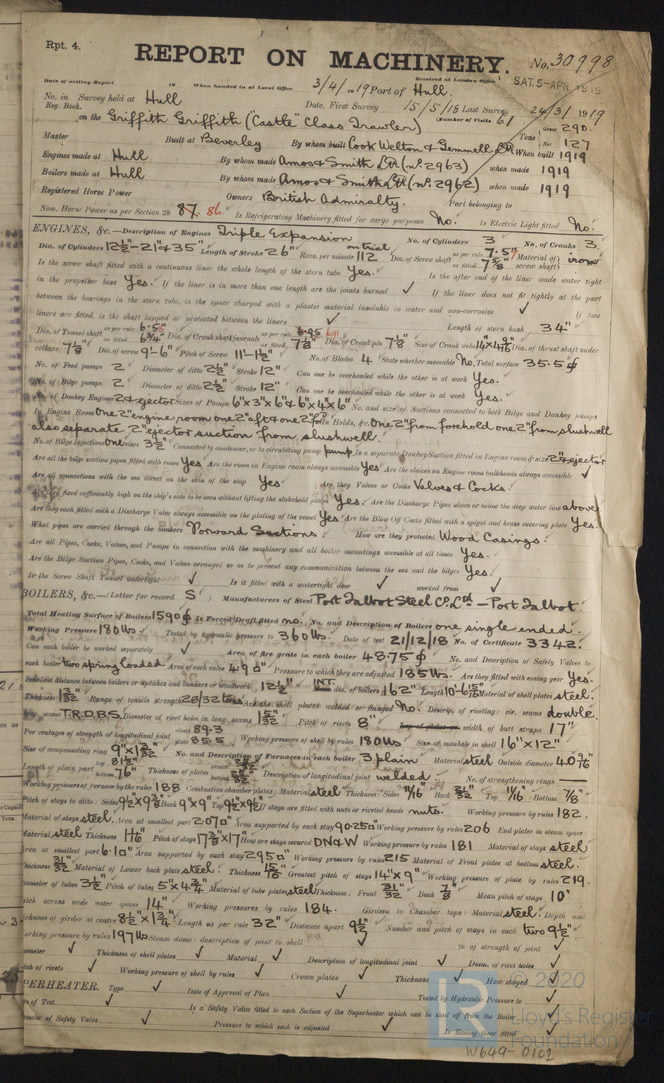 Rpt. 4.
REPORT ON MACHINERY. No. 30998
Date of writing Report 19 When handed in at Local Office 3/4/1919 Port of Hull. Received at London Office SAT. 5-APR. 1919
No. in Reg. Book. Survey held at Hull Date, First Survey 15/5/18 Last Survey 24/3/1919
on the Griffith Griffith ("Castle" Class Trawler) (Number of Visits 61
Tons Gross 290. Net 127
Master Built at Beverley By whom built Cook Welton & Gemmell Ltd When built 1919
Engines made at Hull By whom made Amos & Smith Ltd (No. 2963) when made 1919
Boilers made at Hull By whom made Amos & Smith Ltd (No. 2962) when made 1919
Registered Horse Power Owners British Admiralty. Port belonging to
Nom. Horse Power as per Section 28 87. 86. Is Refrigerating Machinery fitted for cargo purposes No. Is Electric Light fitted No.
ENGINES, &c.—Description of Engines Triple Expansion No. of Cylinders 3 No. of Cranks 3.
Dia. of Cylinders 12½"-21"&35" Length of Stroke 26" Revs. per minute on trial 112 Dia. of Screw shaft as per rule 7.5" as fitted 7⅝" Material of screw shaft iron
Is the screw shaft fitted with a continuous liner the whole length of the stern tube Yes. Is the after end of the liner made water tight
in the propeller boss Yes. If the liner is in more than one length are the joints burned ✓ If the liner does not fit tightly at the part
between the bearings in the stern tube, is the space charged with a plastic material insoluble in water and non-corrosive ✓ If two
liners are fitted, is the shaft lapped or protected between the liners ✓ Length of stern bush 34"
Dia. of Tunnel shaft as per rule 6.5" as fitted 6¾" Dia. of Crank shaft journals as per rule 6.95 as fitted 7⅛" Dia. of Crank pin 7⅛" Size of Crank webs Dia. of thrust shaft under
collars 7⅛" Dia. of screw 9'-6" Pitch of Screw 11'-1½" No. of Blades 4 State whether moveable No. Total surface 35.5 ⌀
No. of Feed pumps 2 Diameter of ditto 2½" Stroke 12" Can one be overhauled while the other is at work Yes.
No. of Bilge pumps 2 Diameter of ditto 2½" Stroke 12" Can one be overhauled while the other is at work Yes.
No. of Donkey Engines 2 & ejector Sizes of Pumps 6"x3"x6" & 6"x4"x6" No. and size of Suctions connected to both Bilge and Donkey pumps
In Engine Room One 2" engine room one 2" aft & one 2" In Holds, &c. One 2" from forehold one 2" from slushwell
also separate 2" ejector suction from slushwell.
No. of Bilge Injections one sizes 3½" Connected to condenser, or to circulating pump pump Is a separate Donkey Suction fitted in Engine room & size 2" & ejector
Are all the bilge suction pipes fitted with roses Yes Are the roses in Engine room always accessible Yes Are the sluices on Engine room bulkheads always accessible ✓
Are all connections with the sea direct on the skin of the ship Yes Are they Valves or Cocks Valves & Cocks.
fixed sufficiently high on the ship's side to be seen without lifting the stokehold plates Yes. Are the Discharge Pipes above or below the deep water line above
Are they each fitted with a Discharge Valve always accessible on the plating of the vessel Yes Are the Blow Off Cocks fitted with a spigot and brass covering plate Yes.
What pipes are carried through the bunkers Forward Suctions. How are they protected Wood Casings.
Are all Pipes, Cocks, Valves, and Pumps in connection with the machinery and all boiler mountings accessible at all times Yes.
Are the Bilge Suction Pipes, Cocks, and Valves arranged so as to prevent any communication between the sea and the bilges Yes.
Is the Screw Shaft Tunnel watertight ✓ Is it fitted with a watertight door ✓ worked from ✓
BOILERS, &c.—(Letter for record S ) Manufacturers of Steel Port Talbot Steel Co. Ld. — Port Talbot.
Total Heating Surface of Boilers 1590 ⌀ Is Forced Draft fitted no. No. and Description of Boilers one single ended.
Working Pressure 180 lbs. Tested by hydraulic pressure to 360 lbs. Date of test 21/12/18 No. of Certificate 3342.
Can each boiler be worked separately ✓ Area of fire grate in each boiler 48.75 ⌀ No. and Description of Safety Valves to
each boiler two spring loaded Area of each valve 4.90" Pressure to which they are adjusted 185 lbs. Are they fitted with easing gear Yes.
Smallest distance between boilers or uptakes and bunkers or woodwork 12½" INT. dia. of boilers 162" Length Material of shell plates steel.
Thickness Range of tensile strength 28/32 tons Are the shell plates welded or flanged No. Descrip. of riveting: cir. seams double.
long. seams T.R.D.B.S. Diameter of rivet holes in long. seams Pitch of rivets 8" width of butt straps 17"
Per centages of strength of longitudinal joint rivets 89.3 plate 85.5 Working pressure of shell by rules 180 lbs Size of manhole in shell 16"x12"
Size of compensating ring No. and Description of Furnaces in each boiler 3 plain Material steel Outside diameter
Length of plain part top bottom 76" Thickness of plates Description of longitudinal joint welded No. of strengthening rings —
Working pressure of furnace by the rules 188 Combustion chamber plates: Material steel Thickness: Sides 11/16" Back Top 11/16" Bottom 7/8"
Pitch of stays to ditto: Sides Back 9"x9" Top If stays are fitted with nuts or riveted heads nuts. Working pressure by rules 182.
Material of stays steel. Area at smallest part 2.070" Area supported by each stay Working pressure by rules 206 End plates in steam space
Material steel Thickness Pitch of stays How are stays secured DN&W Working pressure by rules 181 Material of stays steel
Area at smallest part 6.10" Area supported by each stay 2950" Working pressure by rules 215 Material of Front plates at bottom steel.
Thickness Material of Lower back plate steel. Thickness Greatest pitch of stays 14"x9" Working pressure of plate by rules 219.
Diameter of tubes 3½" Pitch of tubes 5"x4¾" Material of tube plates steel Thickness: Front Back 7/8" Mean pitch of stays 10"
Pitch across wide water spaces 14" Working pressures by rules 184. Girders to Chamber tops: Material steel. Depth and
thickness of girder at centre 8½"x1¾" Length as per rule 32" Distance apart 9½" Number and pitch of stays in each two 9½"
Working pressure by rules 197 lbs Steam dome: description of joint to shell ✓ % of strength of joint ✓
Diameter ✓ Thickness of shell plates ✓ Material ✓ Description of longitudinal joint ✓ Diam. of rivet holes ✓
Pitch of rivets ✓ Working pressure of shell by rules ✓ Crown plates ✓ Thickness ✓ How stayed ✓
SUPERHEATER. Type ✓ Date of Approval of Plan ✓ Tested by Hydraulic Pressure to ✓
Date of Test ✓ Is a Safety Valve fitted to each Section of the Superheater which can be shut off from the Boiler ✓
Diameter of Safety Valve ✓ Pressure to which each is adjusted ✓ Is Easing Gear fitted ✓
© 2020
Lloyd's Register
Foundation
W649-0162